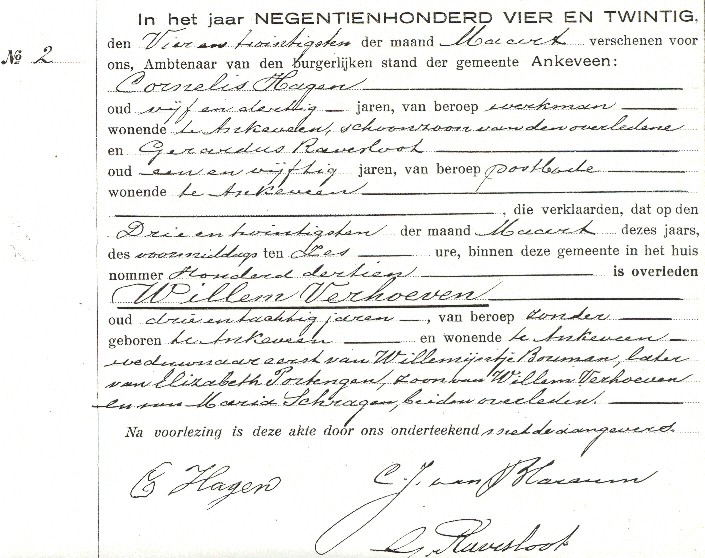 In het jaar NEGENTIENHONDERD VIER EN TWINTIG,
№ 2
den Vier en twintigsten der maand Maart verschenen voor
ons, Ambtenaar van den burgerlijken stand der gemeente Ankeveen:
Cornelis Hagen
oud vijf en dertig jaren, van beroep werkman
wonende te Ankeveen, schoonzoon van den overledene
en Gerardus Raversloot
oud een en vijftig jaren, van beroep postbode
wonende te Ankeveen
, die verklaarden, dat op den
Drie en twintigsten der maand Maart dezes jaars,
des voormiddags ten Zes ure, binnen deze gemeente in het huis
nommer Honderd dertien is overleden
Willem Verhoeven
oud drie en tachtig jaren, van beroep zonder
geboren te Ankeveen en wonende te Ankeveen
weduwnaar eerst van Willemijntje Bouman, later
van Elizabeth Portengen, zoon van Willem Verhoeven
en van Maria Schragen, beiden overleden.
Na voorlezing is deze akte door ons onderteekend met de aangevers.
C Hagen C. J. van
G. Raversloot